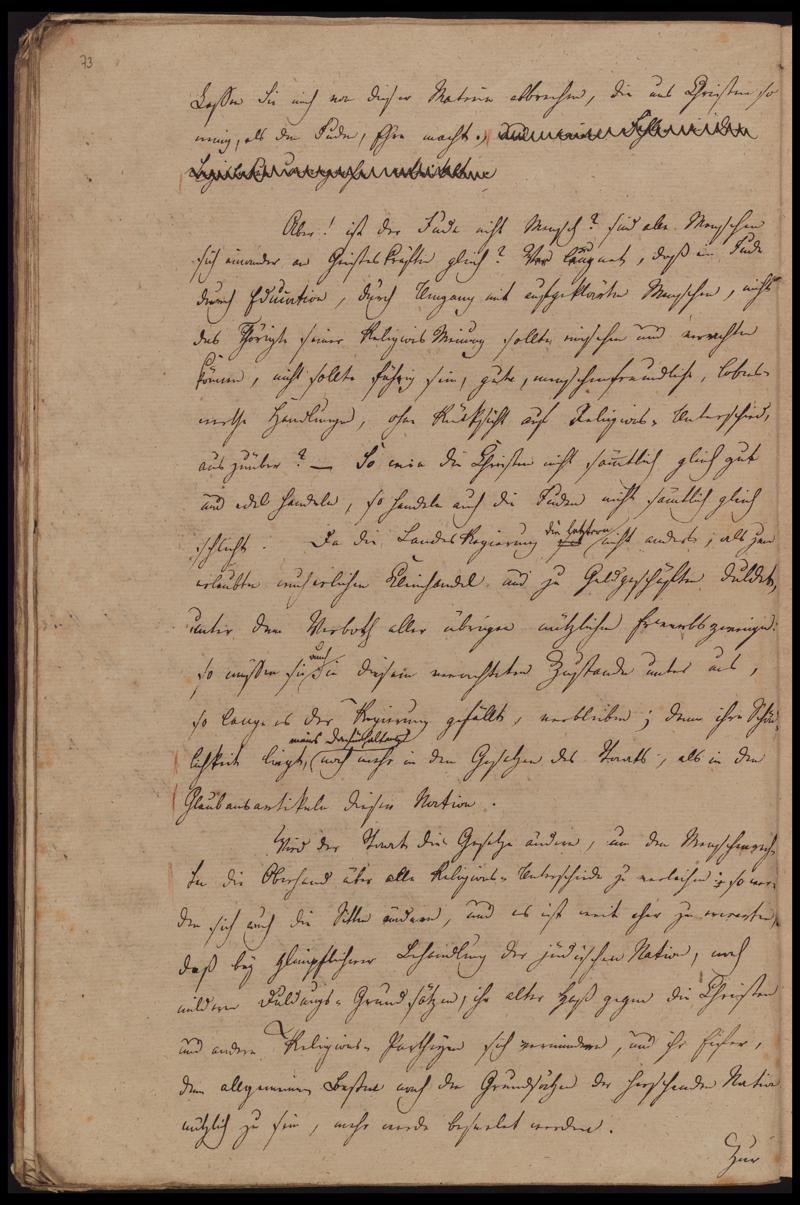 73
Lassen Sie mich von dieser Materie abbrechen, die uns Christen so
wenig, als den Juden, Ehre macht.
Aber! ist der Jude nicht Mensch? sind alle Menschen
sich einander an Geisteskräften gleich? Wer läugnet, daß ein Jude
durch Education, durch Umgang mit aufgeklärten Menschen, nicht
das Thörigte seiner Religions Meinung sollte einsehen und verachten
können, nicht sollte fähig sein, gute, menschenfreundliche, lobens-
werthe Handlungen, ohne Rücksicht auf Religions-Unterschied,
auszuüben? — So wie die Christen nicht sämtlich gleich gut
und edel handeln, so handeln auch die Juden nicht sämtlich gleich
schlecht. Da die Landes Regierung die letztern nicht anders, als zum
erlaubten wucherlichen Kleinhandel und zu Geldgeschäften duldet,
unter dem Verboth aller übrigen nützlichen Erwerbszweige:
so müssen sie auch in diesem verachteten Zustande unter uns,
so lange es der Regierung gefällt, verbleiben; denn ihre Schäd-
lichkeit liegt, meines Dafürhaltens noch mehr in den Gesetzen des Staats, als in den
Glaubensartikeln dieser Nation.
Wird der Staat die Gesetze ändern, um den Menschenrech-
ten die Oberhand über alle Religions-Unterschiede zu verleihen; so wer-
den sich auch die Sitten ändern, und es ist weit eher zu erwarten,
daß bey glimpflicherer Behandlung der jüdischen Nation, nach
mildern Duldungs-Grundsätzen, ihr alter Haß gegen die Christen
und andere Religions-Partheyen sich vermindern, und ihr Eifer,
dem allgemeinen Besten nach den Grundsätzen der herschenden Nation
nützlich zu sein, mehr werde beseelet werden.
Zur